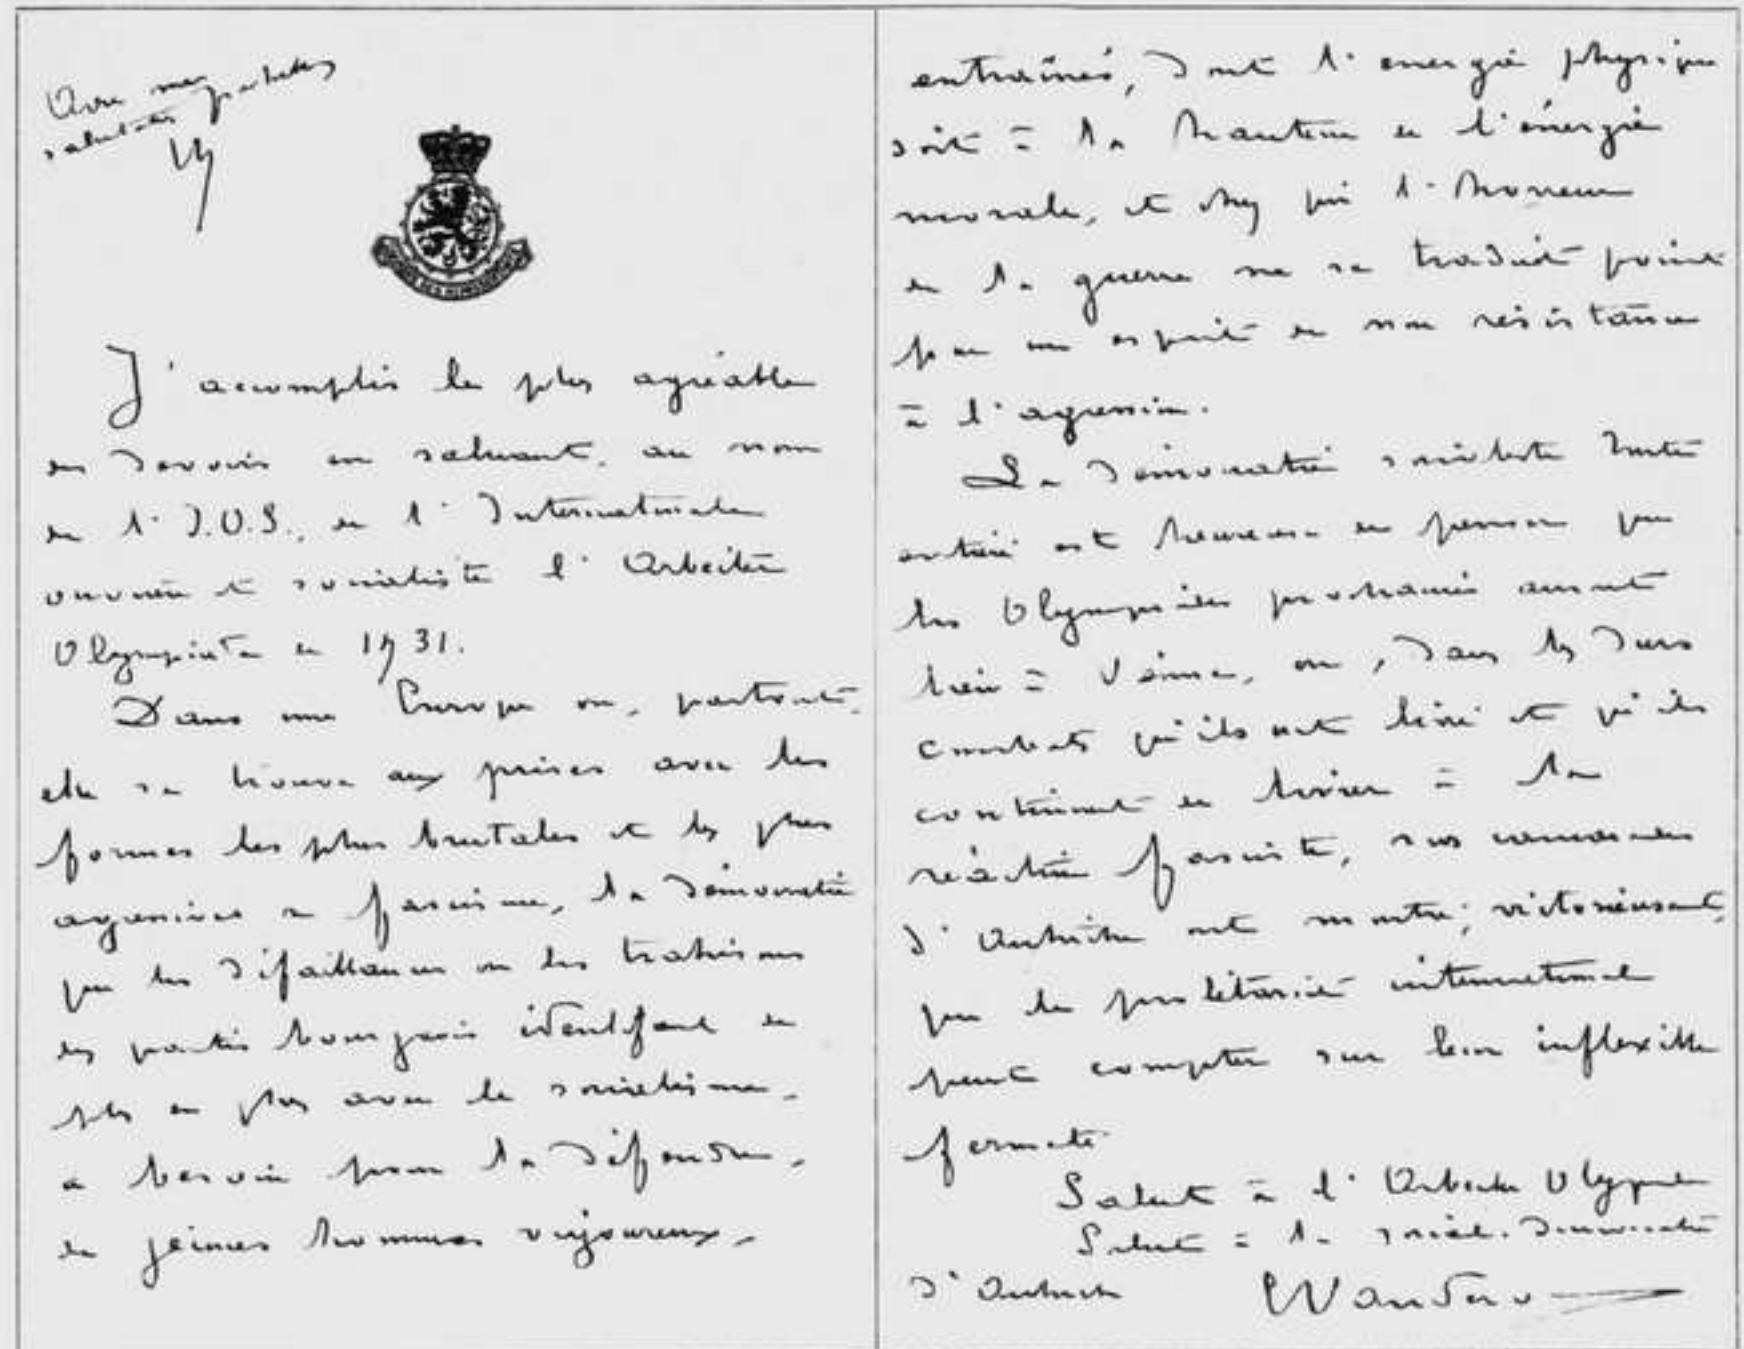 Avec mes
salutations
J'accomplis le plus agréable
des devoirs en saluant, au nom
de l'I.O.S., de l'Internationale
ouvrière et socialiste l'Arbeiter
Olympiade de 1931.
Dans une Europe où, partout,
elle se trouve aux prises avec les
formes les plus brutales et les plus
agressives du fascisme, la démocratie
que les défaillances ou les trahisons
des partis bourgeois identifient de
plus en plus avec le socialisme,
a besoin pour la défendre,
de jeunes hommes vigoureux,
entraînés, dont l'énergie physique
soit à la hauteur de l'énergie
morale, et chez qui l'horreur
de la guerre ne se traduit point
par un esprit de non résistance
à l'agression.
La démocratie socialiste toute
entière est heureuse de penser que
les Olympiades prochaines auront
lieu à Vienne, où, dans les durs
combats qu'ils ont livré et qu'ils
continuent de livrer à la
réaction fasciste, nos camarades
d'Autriche ont montré, victorieusement,
que le prolétariat international
peut compter sur leur inflexible
fermeté.
Salut à l'Arbeiter Olympiade
Salut à la social-démocratie
d'Autriche